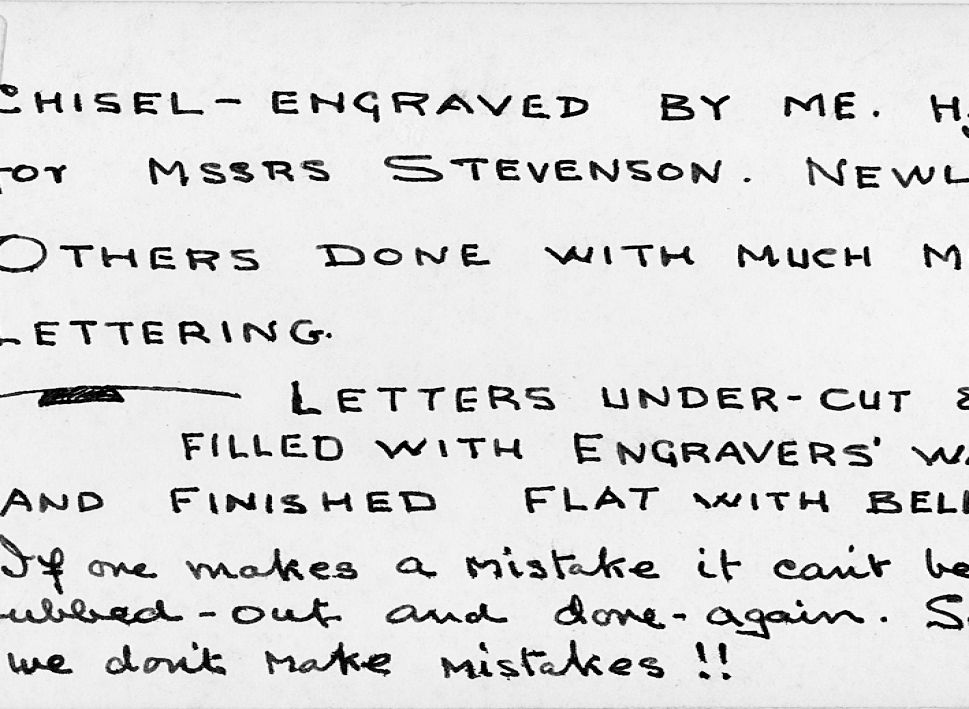 CHISEL-ENGRAVED BY ME. H
for MSSRS STEVENSON. NEWL
OTHERS DONE WITH MUCH M
LETTERING.
LETTERS UNDER-CUT &
FILLED WITH ENGRAVERS' WA
AND FINISHED FLAT WITH BELL
If one makes a mistake it can't be
rubbed-out and done-again. So
we don't make mistakes!!